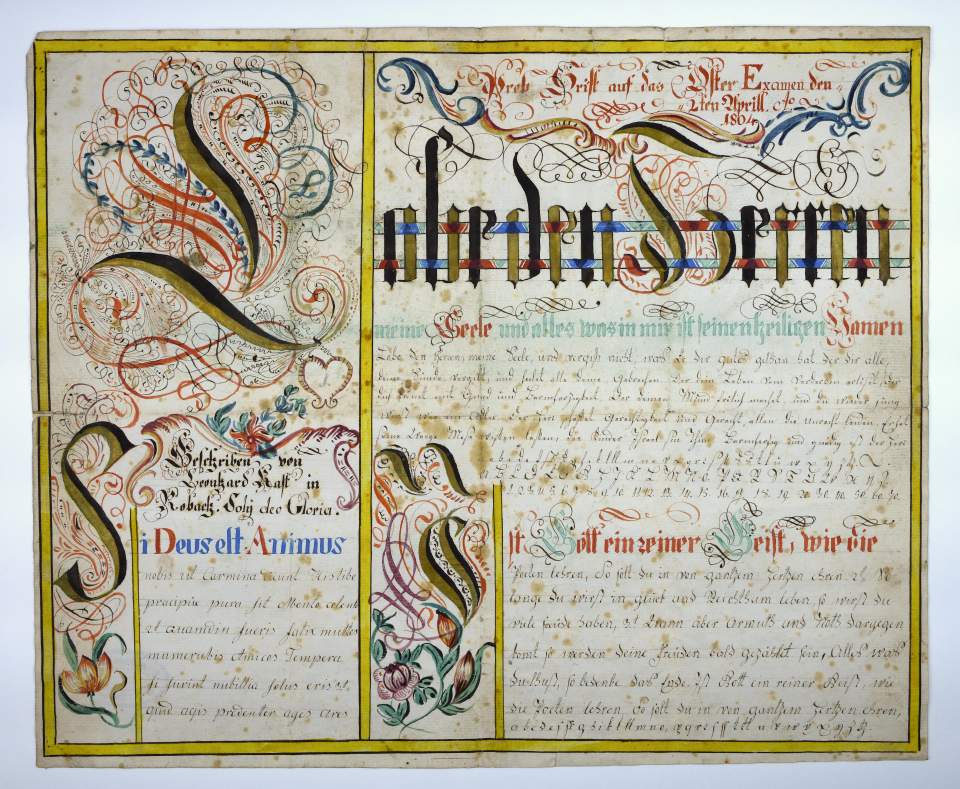 Prob Srift auf das Oster Examen den
2ten Aprill. Ao
1804
Lobe den Herren
meine Seele und alles was in mir ist seinen heiligen Namen
Lobe den Herren, meine Seele, und vergiß nicht, was Er dir gutes gethan hat. Der dir alle
deine Sünde vergibt, und heilet alle deine Gebrechen. Der dein Leben vom Verderben erlößt, der
dich krönet mit Gnad und Barmhertzigkeit. Der deinen Mund frölich machet, und du wieder jung
wirst wie ein Adler. Der Herr schaffet Gerechtigkeit und Gericht, allen die Unrecht leiden. Er hat
seine Wege Mose wissen lassen, die Kinder Israel sein Thun. Barmhertzig und gnädig ist der Herr
1. 2. 3. 4. 5. 6. 7. 8. 9. 10. 11. 12. 13. 14. 15. 16. 17. 18. 19. 20. 30. 40. 50. 60. 70.
Geschriben von
Leonhard Kast in
Robach. Soly deo Gloria.
Si Deus est Animus
nobis ut Carmina
præcipue pura sit Mente colendus
et quamdiu fueris felix multos
numerabis Amicos Tempora
si fuerint nubillia solus eris et
quid agis prudenter agas
Ist Gott ein reiner Geist, wie die
Poeten lehren, So solt du in von gantzem hertzen ehren, et
lange du wirst in glück und Reichthum leben, so wirst du
viele freude haben, et Wann aber Armuth und Noth dargegen
komt so werden deine freuden bald gezählet sein, Alles was
du thust, so bedenke das Ende. Ist Gott ein reiner Geist, wie
die Poeten lehren, So solt du in von gantzem hertzen ehren,